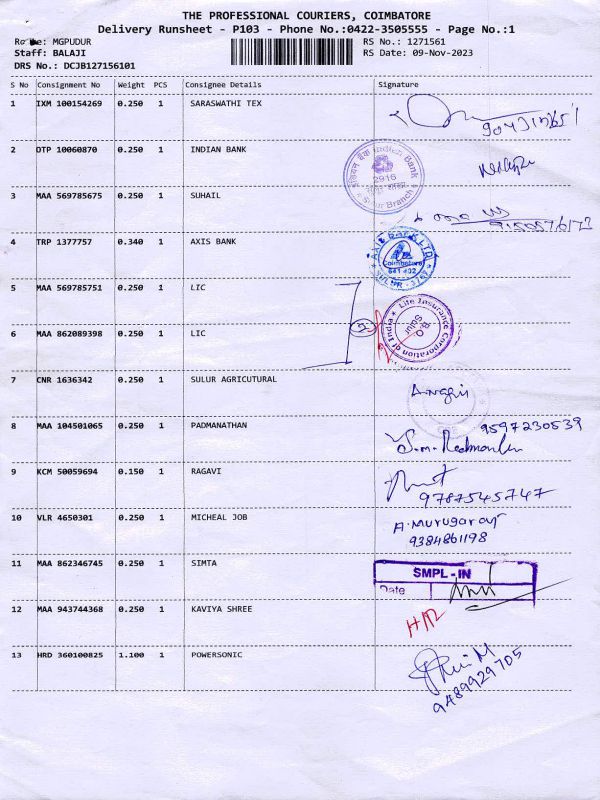 THE PROFESSIONAL COURIERS, COIMBATORE
Delivery Runsheet - P103 - Phone No.:0422-3505555 - Page No.:1
Route: MGPUDUR RS No.: 1271561
Staff: BALAJI RS Date: 09-Nov-2023
DRS No.: DCJB127156101
S No Consignment No Weight PCS Consignee Details Signature
1 IXM 100154269 0.250 1 SARASWATHI TEX
2 OTP 10060870 0.250 1 INDIAN BANK
Indian Bank
2916
Sulur Branch
3 MAA 569785675 0.250 1 SUHAIL
4 TRP 1377757 0.340 1 AXIS BANK
AXIS BANK LTD
Coimbatore
641 402
SULUR
5 MAA 569785751 0.250 1 LIC
Life Insurance Corporation of India
B.O.
Sulur
6 MAA 862089398 0.250 1 LIC
7 CNR 1636342 0.250 1 SULUR AGRICUTURAL
8 MAA 104501065 0.250 1 PADMANATHAN
9597230539
9 KCM 50059694 0.150 1 RAGAVI
9787545747
10 VLR 4650301 0.250 1 MICHEAL JOB
A.Murugaraj
9384861198
11 MAA 862346745 0.250 1 SIMTA
SMPL - IN
Date
12 MAA 943744368 0.250 1 KAVIYA SHREE
13 HRD 360100825 1.100 1 POWERSONIC
9489929705